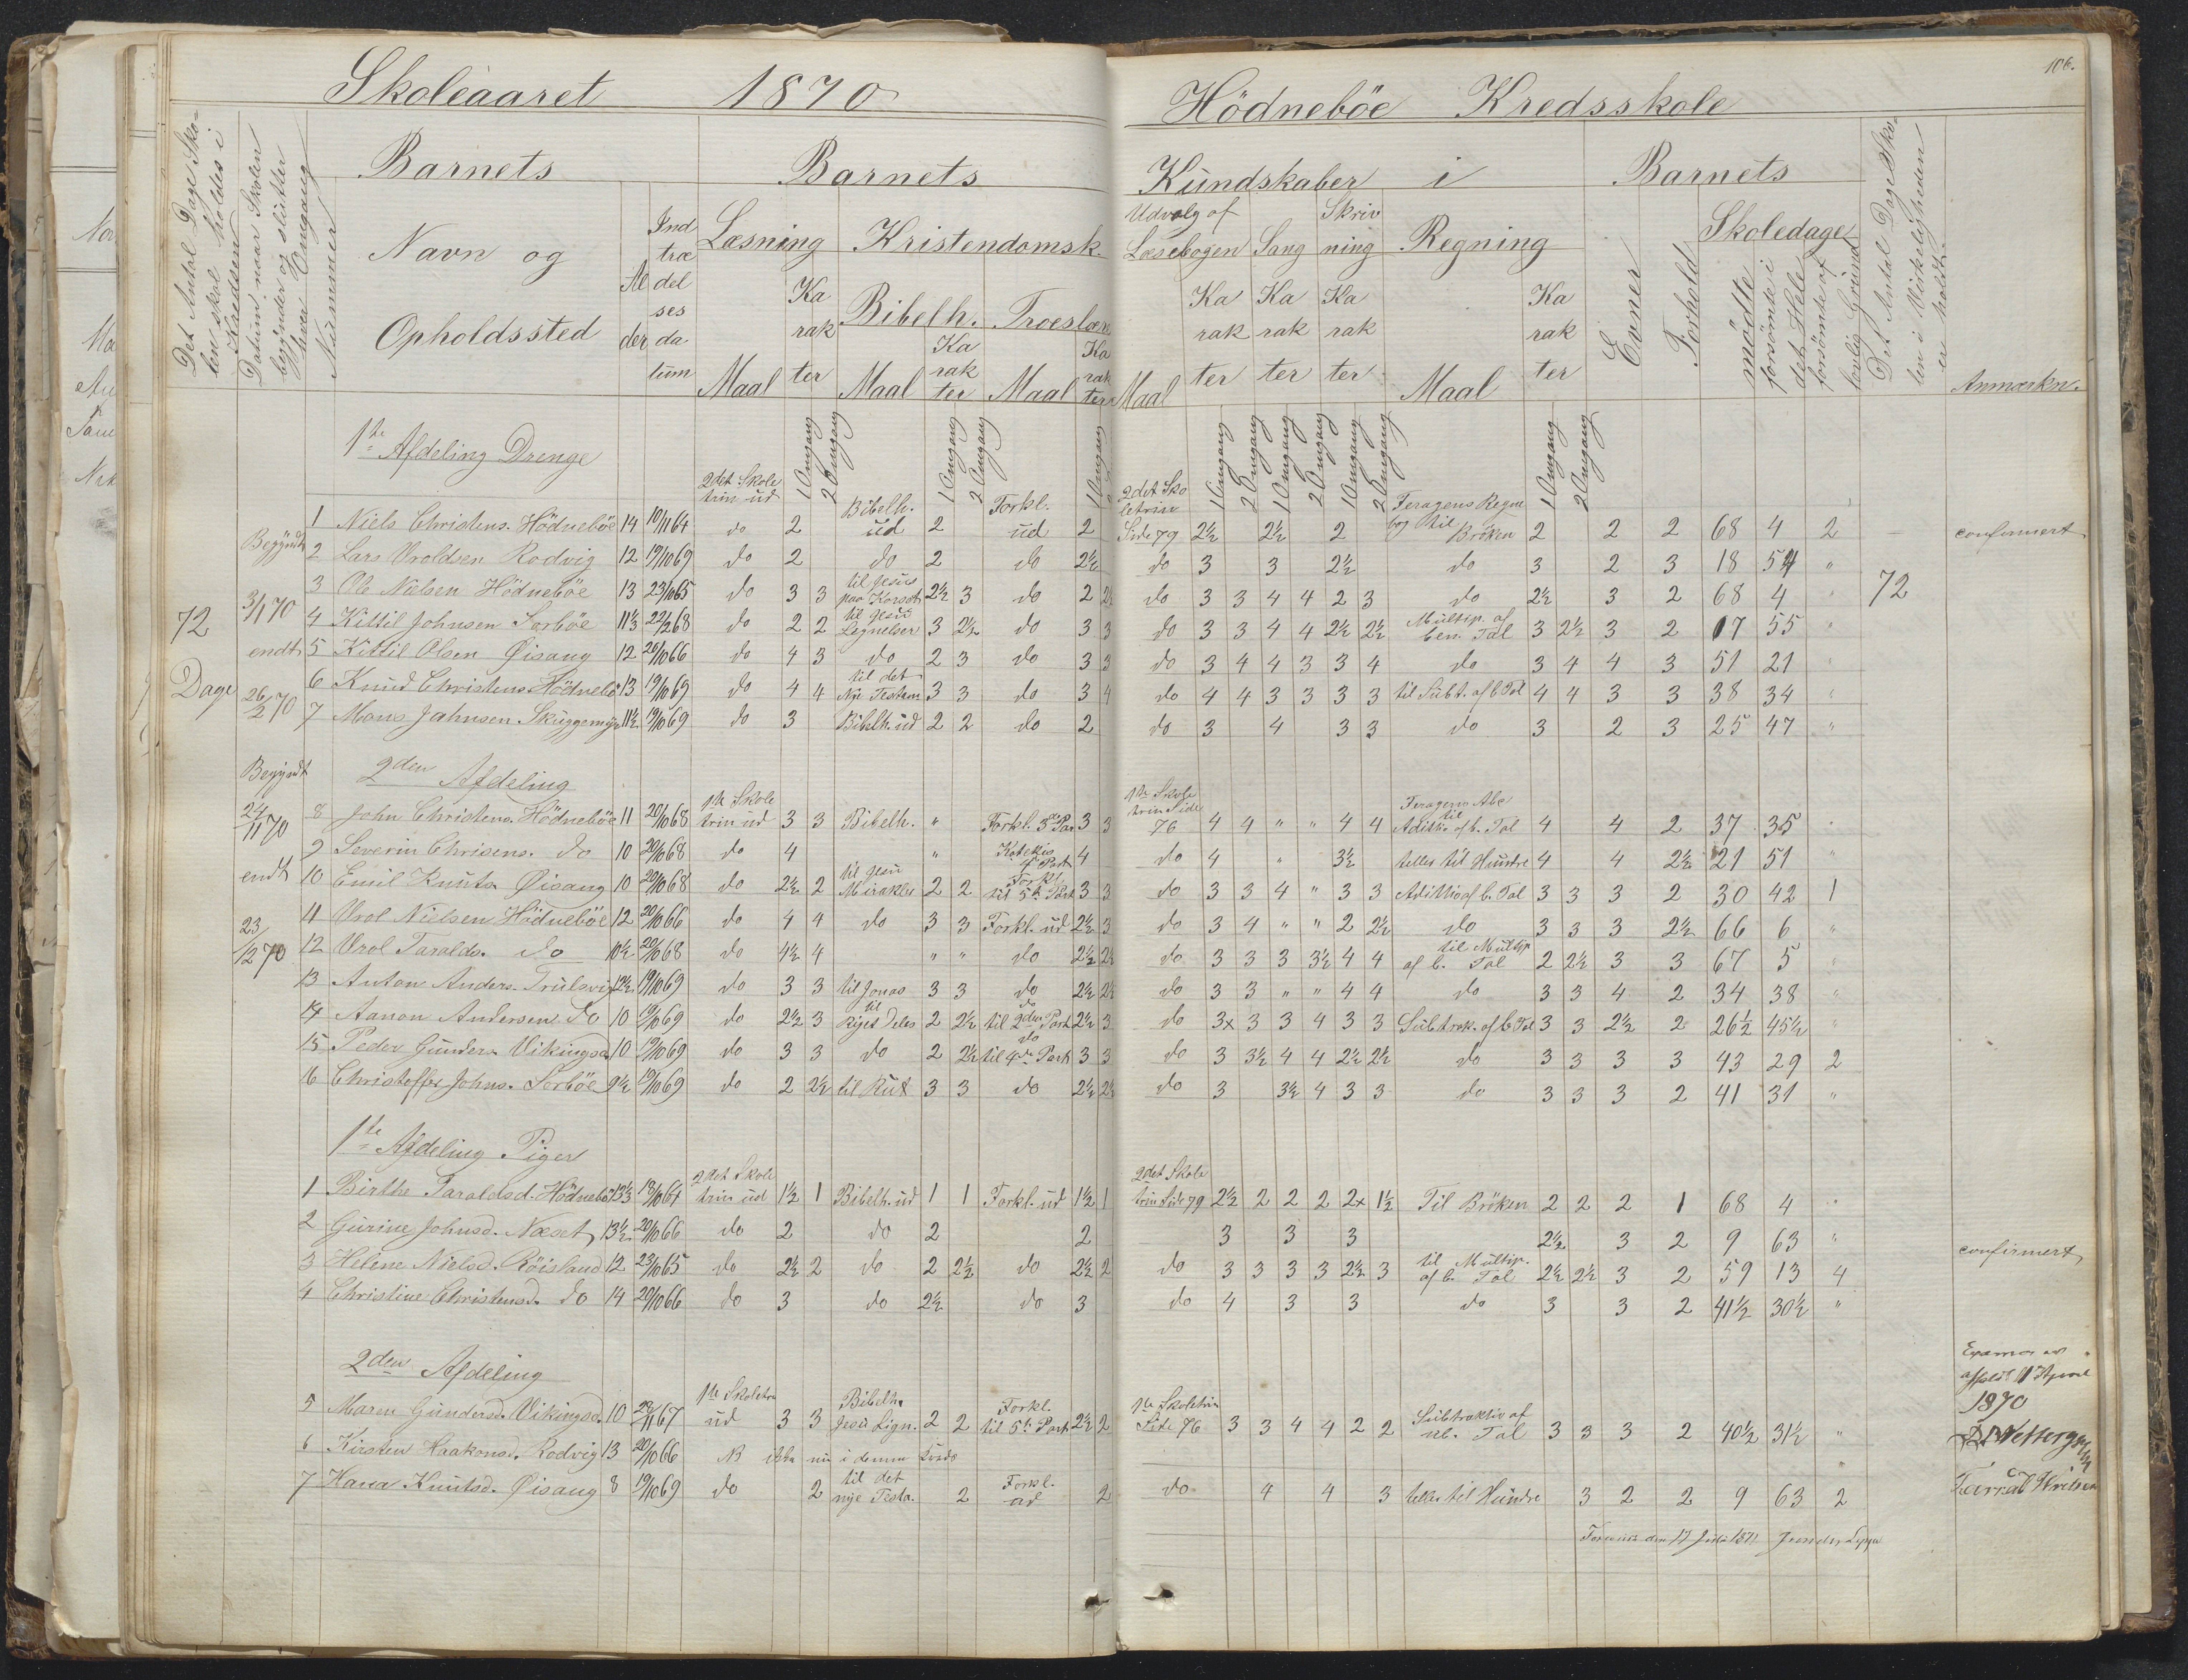 106.
Skoleaaret 1870 Hödneböe Kredsskole
Det Antal Dage Sko-
len skal holdes i
Kredsen
Datum naar Skolen
begynder og slutter
hver Omgang
Nummer
Barnets
Navn og
Opholdssted
Al
der
Ind
træ
del
ses
da
tum
Barnets Kundskaber i
Læsning Kristendomsk.
Maal Ka rak ter
Bibelh. Troeslære
Maal Ka rak ter Maal Ka rak ter
Udvalg af
Læsebogen Sang Skriv
ning Regning
Maal Ka rak ter Ka rak ter Ka rak ter Maal Ka rak ter
Barnets
Evner
Forhold
Skoledage
mödte
forsömte i
det Hele
forsömte af
lovlig Grund
Det Antal Dage Sko-
len i Virkeligheden
er holdt.
Anmærkn.
1ste Afdeling Drenge
1 Omgang 2 Omgang 1 Omgang 2 Omgang 1 Omgang
1 Omgang 2 Omgang 1 Omgang 2 Omgang 1 Omgang 2 Omgang 1 Omgang 2 Omgang
2det Skole
trin ud
Bibelh. Forkl.
2det Sko
letrin
1 Niels Christens. Hödneböe 14 10/11 64 do 2 ud 2 ud 2 Side 79 2½ 2½ 2 Bröken 2 2 2 68 4 2 — confirmert
Begÿndt
2 Lars Vroldsen Rodvig 12 19/10 69 do 2 do 2 do 2½ do 3 3 2½ do 3 2 3 18 54 "
3 Ole Nielsen Hödneböe 13 23/10 65 do 3 3 til Jesus
paa Korset 2½ 3 do 2 2½ do 3 3 4 4 2 3 do 2½ 3 2 68 4 " 72
72 3/1 70
4 Kittil Johnsen Sorböe 11½ 22/2 68 do 2 2 til Jesu
Lignelser 3 2½ do 3 3 do 3 3 4 4 2½ 2½ Multip. af
ben. Tal 3 2½ 3 2 17 55 "
endt
5 Kittil Olsen Øisang 12 20/10 66 do 4 3 do 2 3 do 3 3 do 3 4 4 3 3 4 do 3 4 4 3 51 21 "
Dage 26/2 70
6 Knud Christens. Hödneböe 13 19/10 69 do 4 4 til det
Nÿe Testem 3 3 do 3 4 do 4 4 3 3 3 3 til Subt. af b. Tal 4 4 3 3 38 34 "
7 Mons Jahnsen Skuggemyr 11½ 19/10 69 do 3 Bibelh. ud 2 2 do 2 do 3 4 3 3 do 3 2 3 25 47 "
Begyndt
2den Afdeling
24/11 70
1ste Skole
8 John Christens. Hödneböe 11 20/10 68 trin ud 3 3 Bibelh. " Forkl. 3die Par 3 3 1ste Skole
trin Side
76 4 4 " " 4 4 Aditio af b. Tal 4 4 2 37 35 "
9 Severin Chrisens. do 10 20/10 68 do 4 " Katekis
4 Part 4 do 4 " 3½ teller til Hundre 4 4 2½ 21 51 "
endt
10 Emil Knuts. Øisang 10 20/10 68 do 2½ 2 til Jesu
Mirakler 2 2 Forkl.
til 5te Part 3 3 do 3 3 4 " 3 3 Adittio af b. Tal 3 3 3 2 30 42 1
23/12 70
11 Vrol Nielsen Hödneböe 12 20/10 66 do 4 4 do 3 3 Forkl. ud 2½ 3 do 3 4 " " 2 2½ do 3 3 3 2½ 66 6 "
12 Vrol Taralds. do 10½ 20/10 68 do 4½ 4 " " do 2½ 2½ do 3 3 3 3½ 4 4 til Multip
af b. Tal 2 2½ 3 3 67 5 "
13 Anton Anders. Trulsvig 12½ 19/10 69 do 3 3 til Jonas 3 3 do 2½ 2½ do 3 3 " " 4 4 do 3 3 4 2 34 38 "
14 Aanon Andersen do 10 19/10 69 do 2½ 3 til
Riget Deles 2 2½ do
til 2den Part 2½ 3 do 3x 3 3 4 3 3 Subtrak. af b. Tal 3 3 2½ 2 26½ 45½ "
15 Peder Gunders. Vikingsd 10 19/10 69 do 3 3 do 2 2½ do
til 4de Part 3 3 do 3 3½ 4 4 2½ 2½ do 3 3 3 3 43 29 2
16 Christoffer Johns. Sorböe 9½ 19/10 69 do 2 2½ til Rut 3 3 do 2½ 2½ do 3 3½ 4 3 3 do 3 3 3 2 41 31 "
1ste Afdeling Piger
2det Skole
1 Birthe Taraldsd. Hödneböe 13½ 18/10 64 trin ud 1½ 1 Bibelh. ud 1 1 Forkl. ud 1½ 1 2det Skole
trin Side 79 2½ 2 2 2 2x 1½ Til Bröken 2 2 2 1 68 4 "
2 Gurine Johnsd. Næset 13½ 20/10 66 do 2 do 2 2 3 3 3 2½ 3 2 9 63 " confirmert
3 Heline Nielsd. Röisland 12 23/10 65 do 2½ 2 do 2 2½ do 2½ 2 do 3 3 3 3 2½ 3 til Multip.
af b. Tal 2½ 2½ 3 2 59 13 4
4 Christine Christensd. do 14 20/10 66 do 3 do 2½ do 3 do 4 3 3 do 3 3 2 41½ 30½ "
2den Afdeling
1ste Skoletrin
5 Maren Gundersd. Vikingsd. 10 28/11 67 ud 3 3 Bibelh.
Jesu Lign. 2 2 Forkl.
til 5te Part 2½ 2 1ste Skoletrin
Side 76 3 3 4 4 2 2 Subtraktio af
ub. Tal 3 3 3 2 40½ 31½ "
6 Kirsten Haakonsd. Rodvig 13 20/10 66 NB ikke nu i denne Kreds
7 Hana Knutsd. Øisang 8 19/10 69 do 2 til det
nye Testa. 2 Forkl.
ud 2 do 4 4 3 teller til Hundre 3 2 2 9 63 2
Examen er
afholdt 11 April
1870
den 17 Juli 1871